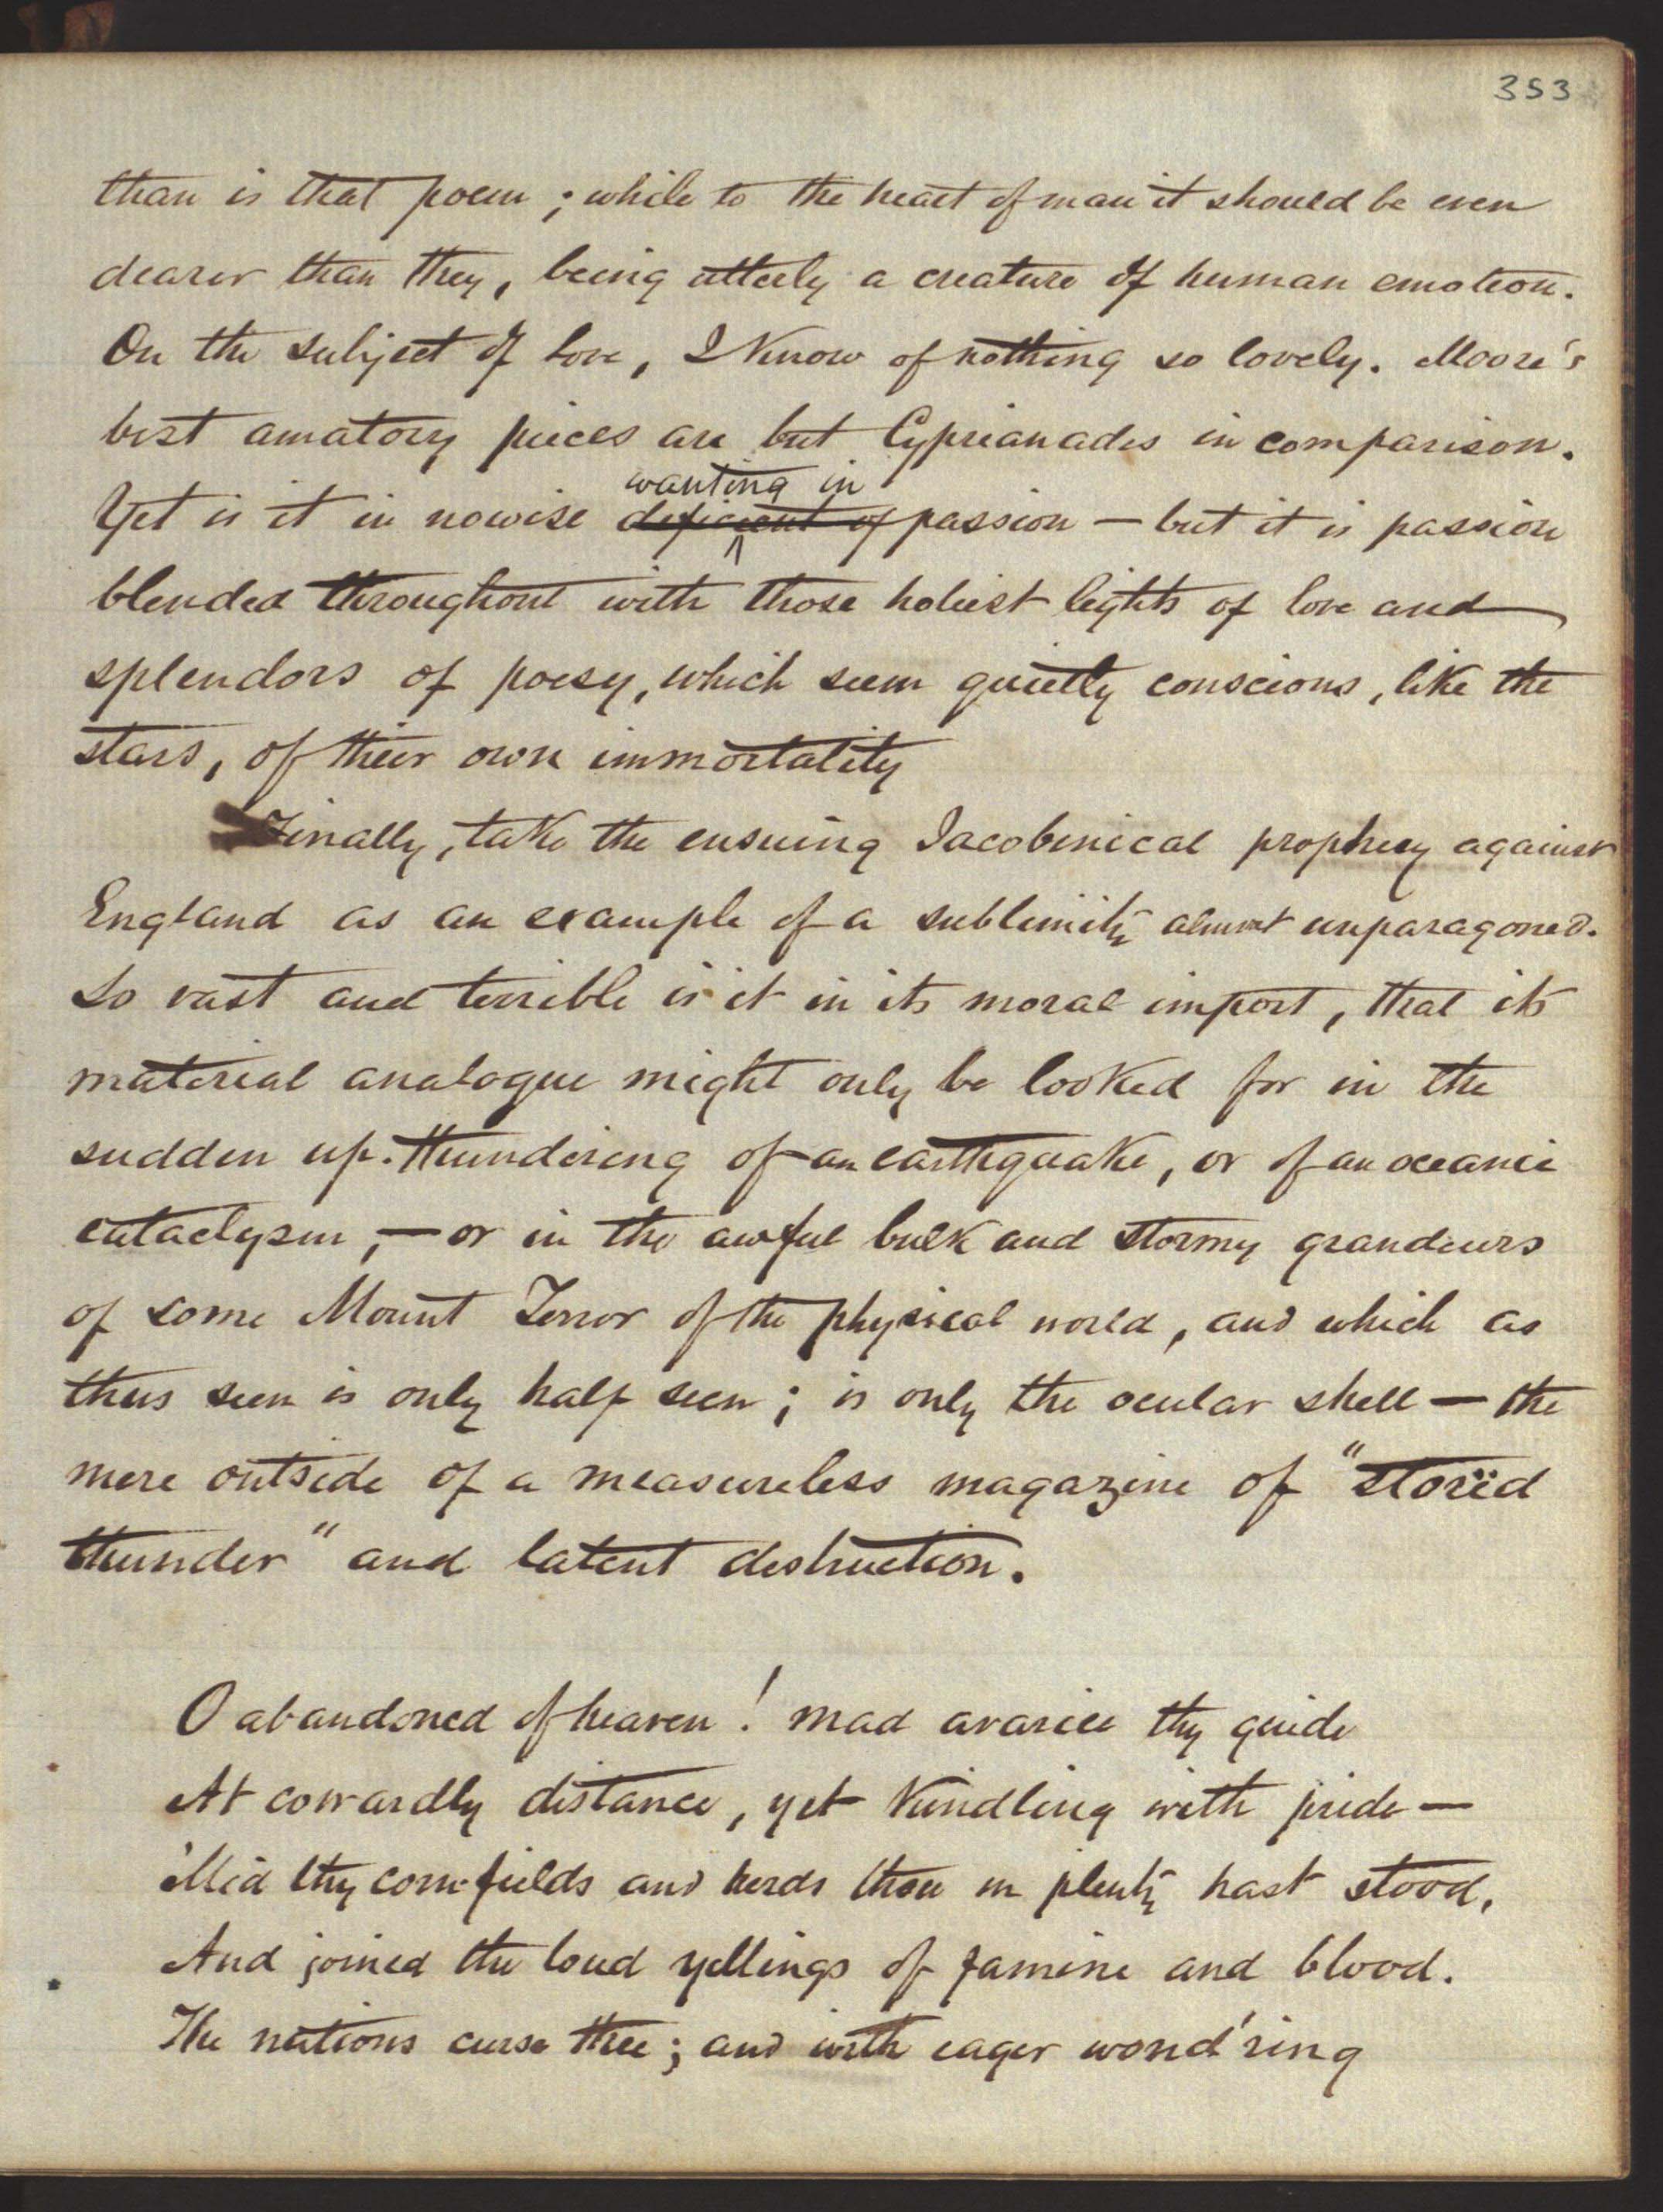 353
than is that poem; while to the heart of man it should be even
dearer than they, being utterly a creature of human emotion.
On the subject of love, I know of nothing so lovely. Moore's
best amatory pieces are but Cyprianades in comparison.
wanting in
Yet is it in nowise deficient of passion — but it is passion
blended throughout with those holiest lights of love and
splendors of poesy, which seem quietly conscious, like the
stars, of their own immortality
Finally, take the ensuing Jacobinical prophecy against
England as an example of a sublimity almost unparagoned.
So vast and terrible is it in its moral import, that its
material analogue might only be looked for in the
sudden up-thundering of an earthquake, or of an oceanic
cataclysm, — or in the awful bulk and stormy grandeurs
of some Mount Terror of the physical world, and which as
thus seen is only half seen; is only the ocular shell — the
mere outside of a measureless magazine of "storëd
thunder" and latent destruction.
O abandoned of heaven! mad avarice thy guide
At cowardly distance, yet kindling with pride —
'Mid thy corn-fields and herds thou in plenty hast stood,
And joined the loud yellings of famine and blood.
The nations curse thee; and with eager wond'ring